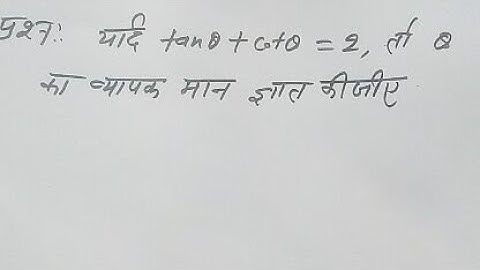 प्रश्न: यदि tanθ + cotθ = 2, तो θ
का व्यापक मान ज्ञात कीजीए